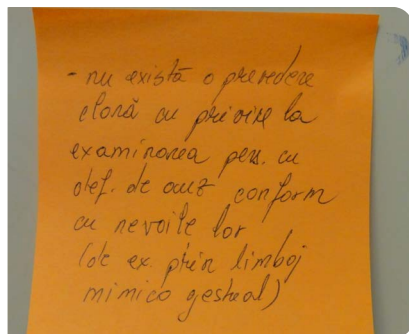 - nu există o prevedere
clară cu privire la
examinarea pers. cu
def. de auz conform
cu nevoile lor
(de ex. prin limbaj
mimico gestual)